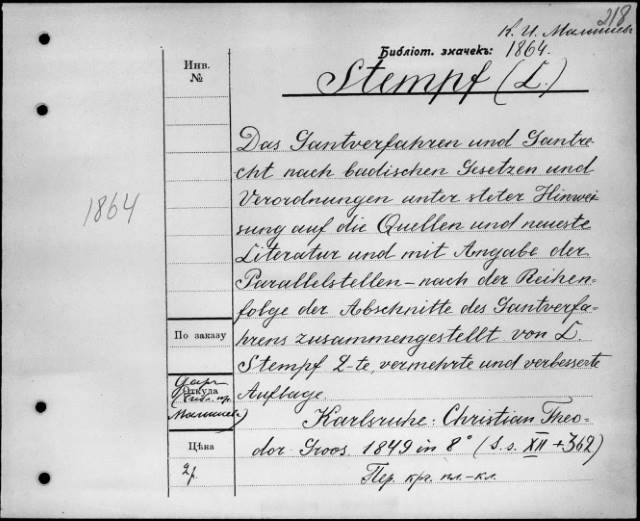 218
К. И. Малышев
Библіот. значекъ: 1864.
Stempf (L.)
Инв.
№
Das Gantverfahren und Gantre-
cht nach badischen Gesetzen und
Verordnungen unter steter Hinwei
sung auf die Quellen und neueste
Literatur und mit Angabe der
Parallelstellen – nach der Reihen-
folge der Abschnitte des Gantverfa-
hrens zusammengestellt von L.
Stempf 2-te, vermehrte und verbesserte
Auflage.
Karlsruhe: Christian Theo-
dor Groos. 1849 in 8° (S.s. XII + 362)
Пер. кнг. пл.-кл.
1864
По заказу
Откуда
Малышева)
Цѣна
2 р.